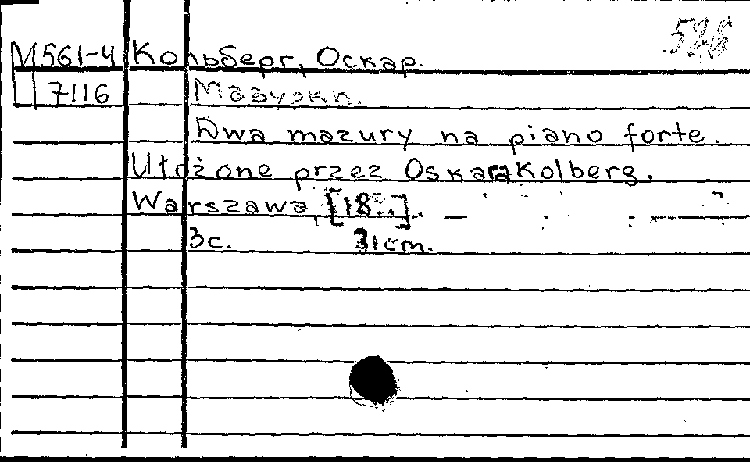 528
М561-4 Кольберг, Оскар.
7116 Мазурки.
Dwa mazury na piano forte.
Ułożone przez Oskara Kolberg.
Warszawa, [18..].
3с. 31cm.